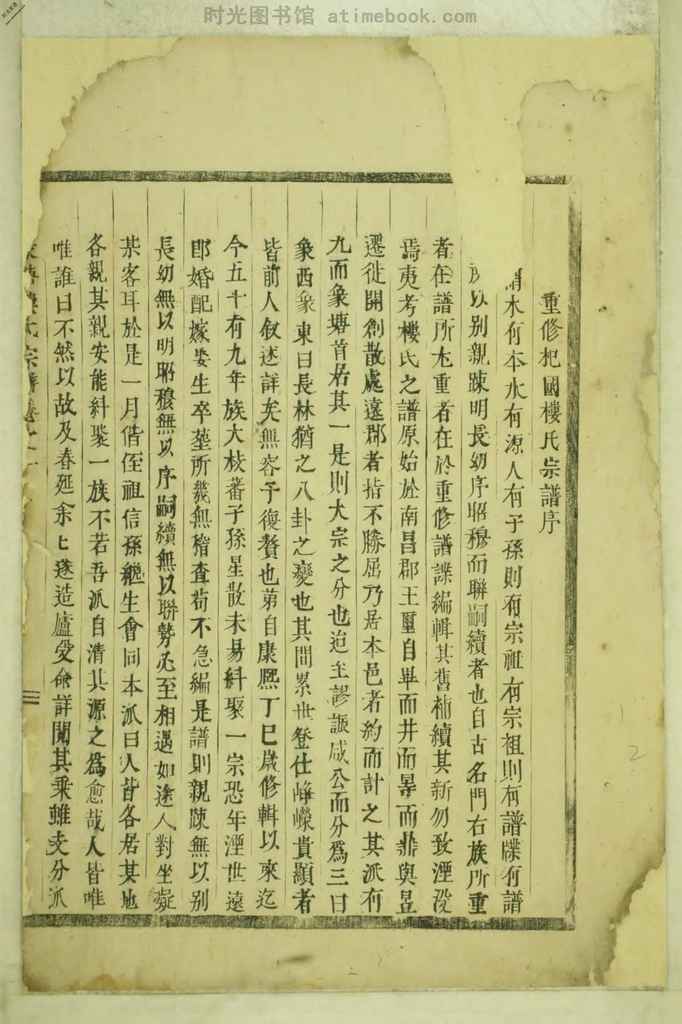 时光图书馆 atimebook.com
重修杞國樓氏宗譜序
水有本水有源人有子孫則有宗祖有宗祖則有譜牒有譜
以别親踈明長幼序昭穆而聯嗣續者也自古名門右族所重
者在譜所尤重者在於重修譜諜編輯其舊補續其新勿致湮没
焉夷考樓氏之譜原始於南昌郡王璽自畢而井而鼎與昱
遷徙開創散處遠郡者指不勝屈乃居本邑者約而計之其派有
九而象塘首居其一是則大宗之分也迨至諺誫咸公而分爲三曰
象西象東曰長林猶之八卦之變也其間累世登仕崢嶸貴顯者
皆前人叙述詳矣無容予復贅也第自康熙丁巳歲修輯以來迄
今五十有九年族大枝蕃子孫星散未易糾聚一宗恐年湮世遠
即婚配嫁娶生卒塋所幾無稽查苟不急編是譜則親踈無以别
長幼無以明昭穆無以序嗣續無以聯勢必至相遇如途人對坐疑
某客耳於是一月偕侄祖信孫繼生會同本派曰人皆各居其地
各親其親安能糾聚一族不若吾派自清其源之爲愈哉人皆唯
唯誰曰不然以故及春延余匕遂造廬受命詳閱其乘雖支分派
氏宗譜卷之一
三